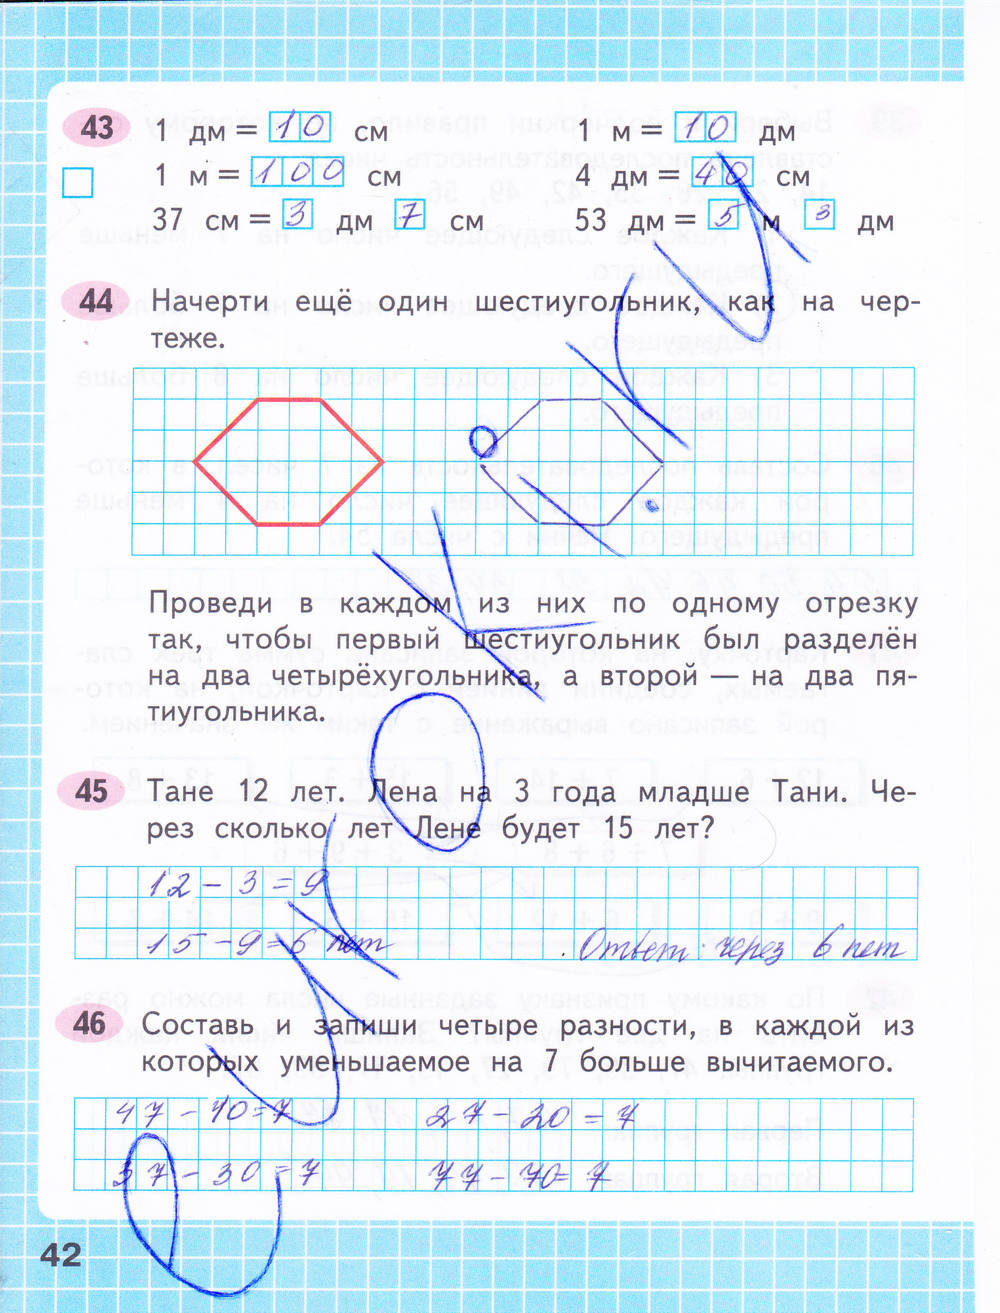 43 1 дм = 10 см 1 м = 10 дм
1 м = 100 см 4 дм = 40 см
37 см = 3 дм 7 см 53 дм = 5 м 3 дм
44 Начерти ещё один шестиугольник, как на чер-
теже.
Проведи в каждом из них по одному отрезку
так, чтобы первый шестиугольник был разделён
на два четырёхугольника, а второй — на два пя-
тиугольника.
45 Тане 12 лет. Лена на 3 года младше Тани. Че-
рез сколько лет Лене будет 15 лет?
12 - 3 = 9
15 - 9 = 6 лет Ответ: через 6 лет
46 Составь и запиши четыре разности, в каждой из
которых уменьшаемое на 7 больше вычитаемого.
47 - 10 = 7 27 - 20 = 7
37 - 30 = 7 77 - 70 = 7
42